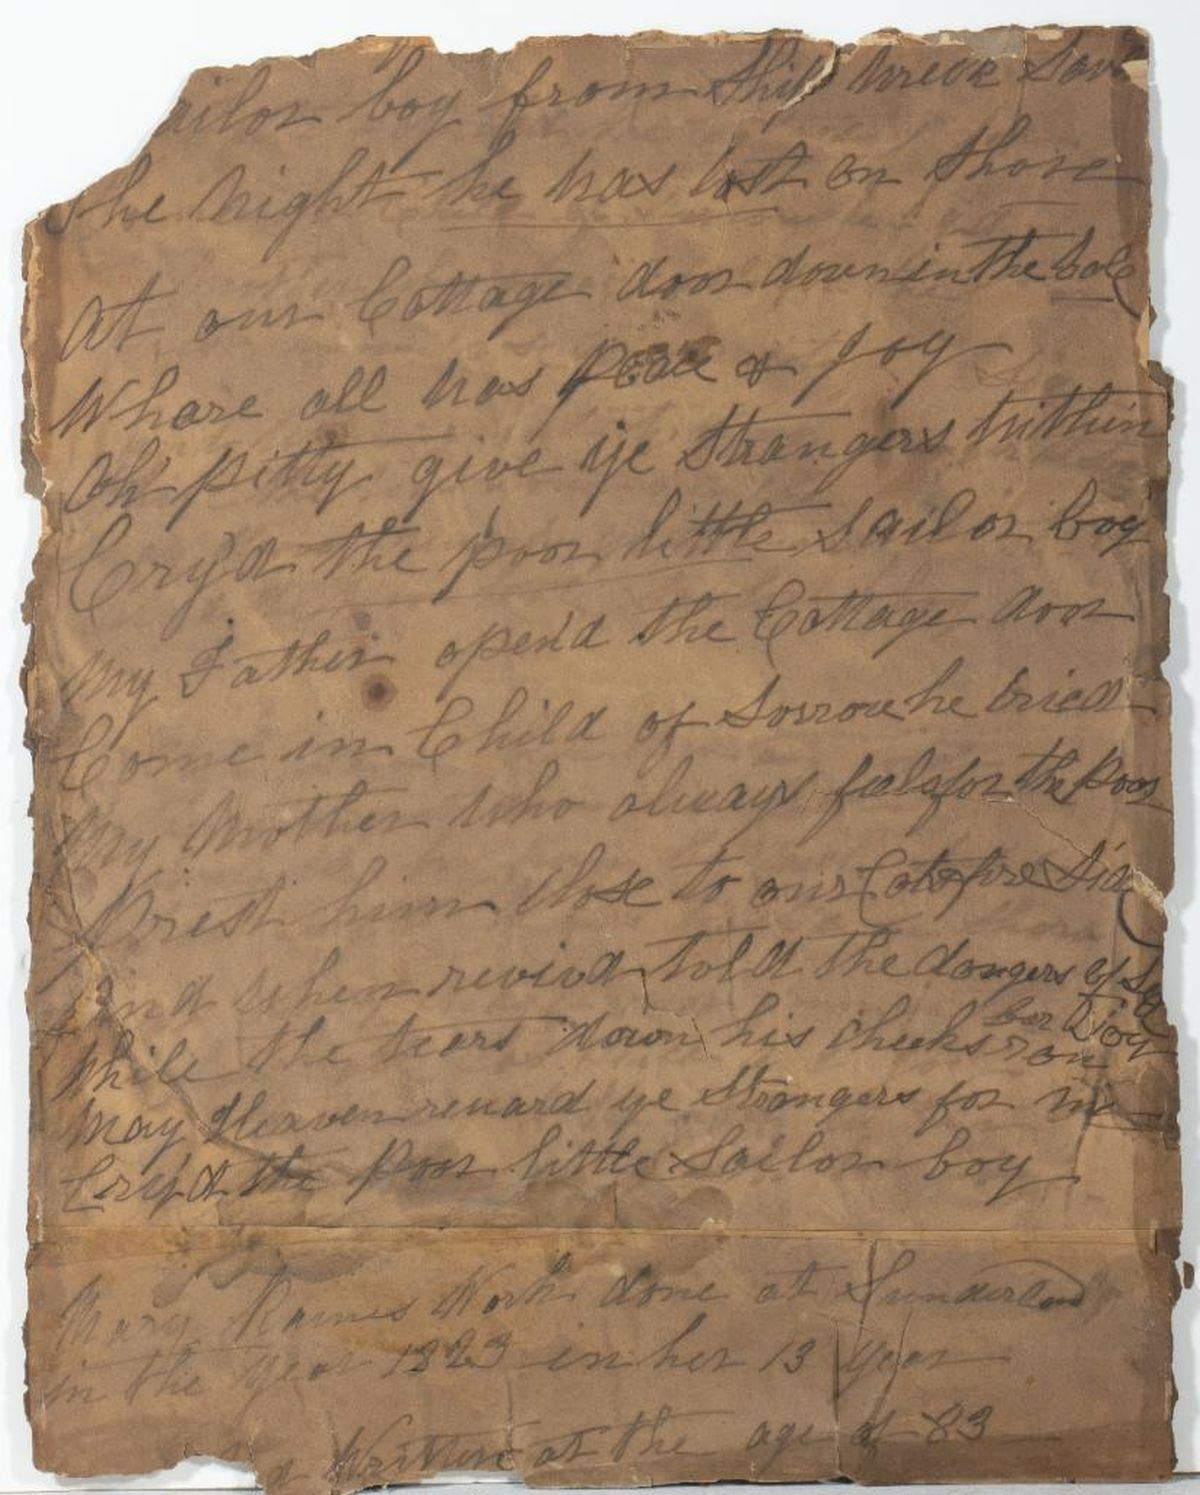 ailor boy from Ship wreck Sav
The Night he was lost on Shore
At our Cottage door down in the Dale
Whare all was Peace & Joy
Oh pitty give ye Strangers within
Cry'd the poor little Sailor boy
My Father open'd the Cottage door
Come in Child of Sorrow he cried
My Mother who always feels for the Poor
Prest him close to our fire Side
And when reviv'd told the dangers of Sea
While the tears down his cheeks ran for Joy
May Heaven reward ye Strangers for me
Cry'd the Poor little Sailor boy
Mary Raines Work done at Sunderland
in the year 1823 in her 13 year
Written at the age of 83